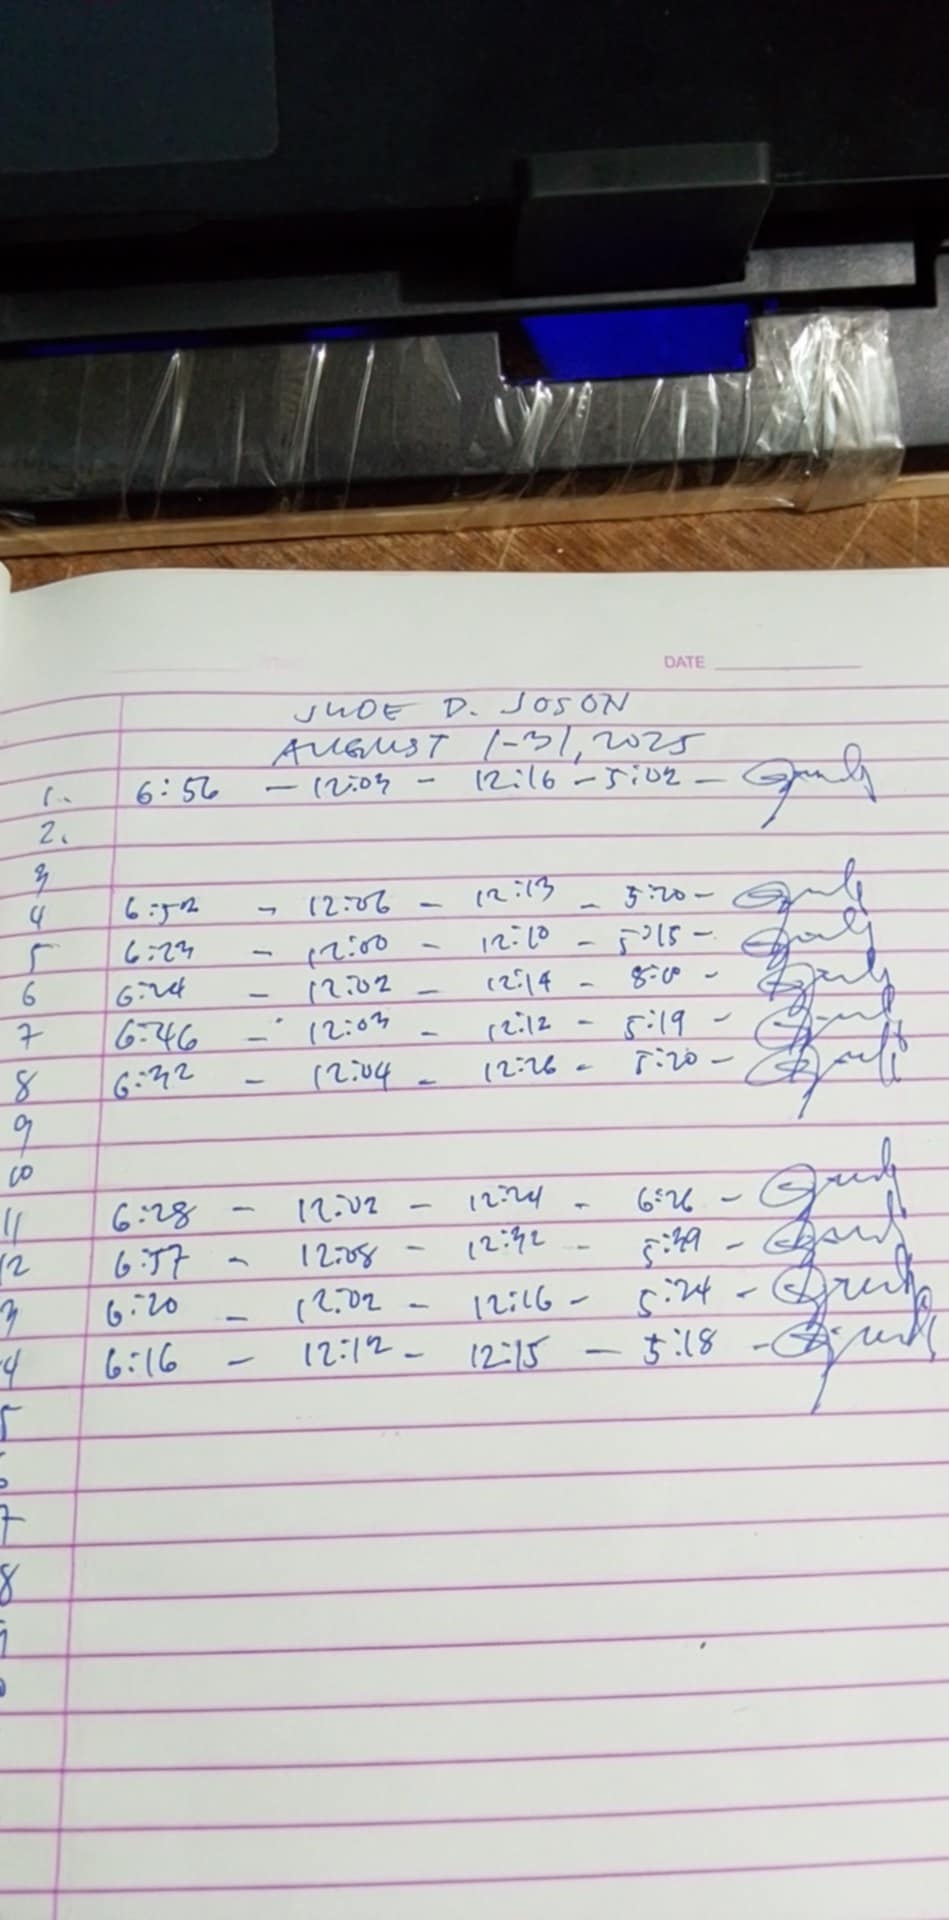 DATE
JUDE D. JOSON
AUGUST 1-31, 2025
1. 6:56 - 12:03 - 12:16 - 5:02 -
2.
3
4 6:52 - 12:06 - 12:13 - 5:20 -
5 6:23 - 12:00 - 12:10 - 5:15 -
6 6:24 - 12:02 - 12:14 -
7 6:46 - 12:03 - 12:12 - 5:19 -
8 6:32 - 12:04 - 12:26 - 5:20 -
9
10
11 6:28 - 12:02 - 12:24 - 6:26 -
12 6:57 - 12:08 - 12:32 - 5:39 -
3 6:20 - 12:02 - 12:16 - 5:24 -
4 6:16 - 12:12 - 12:15 - 5:18 -
5
7
8